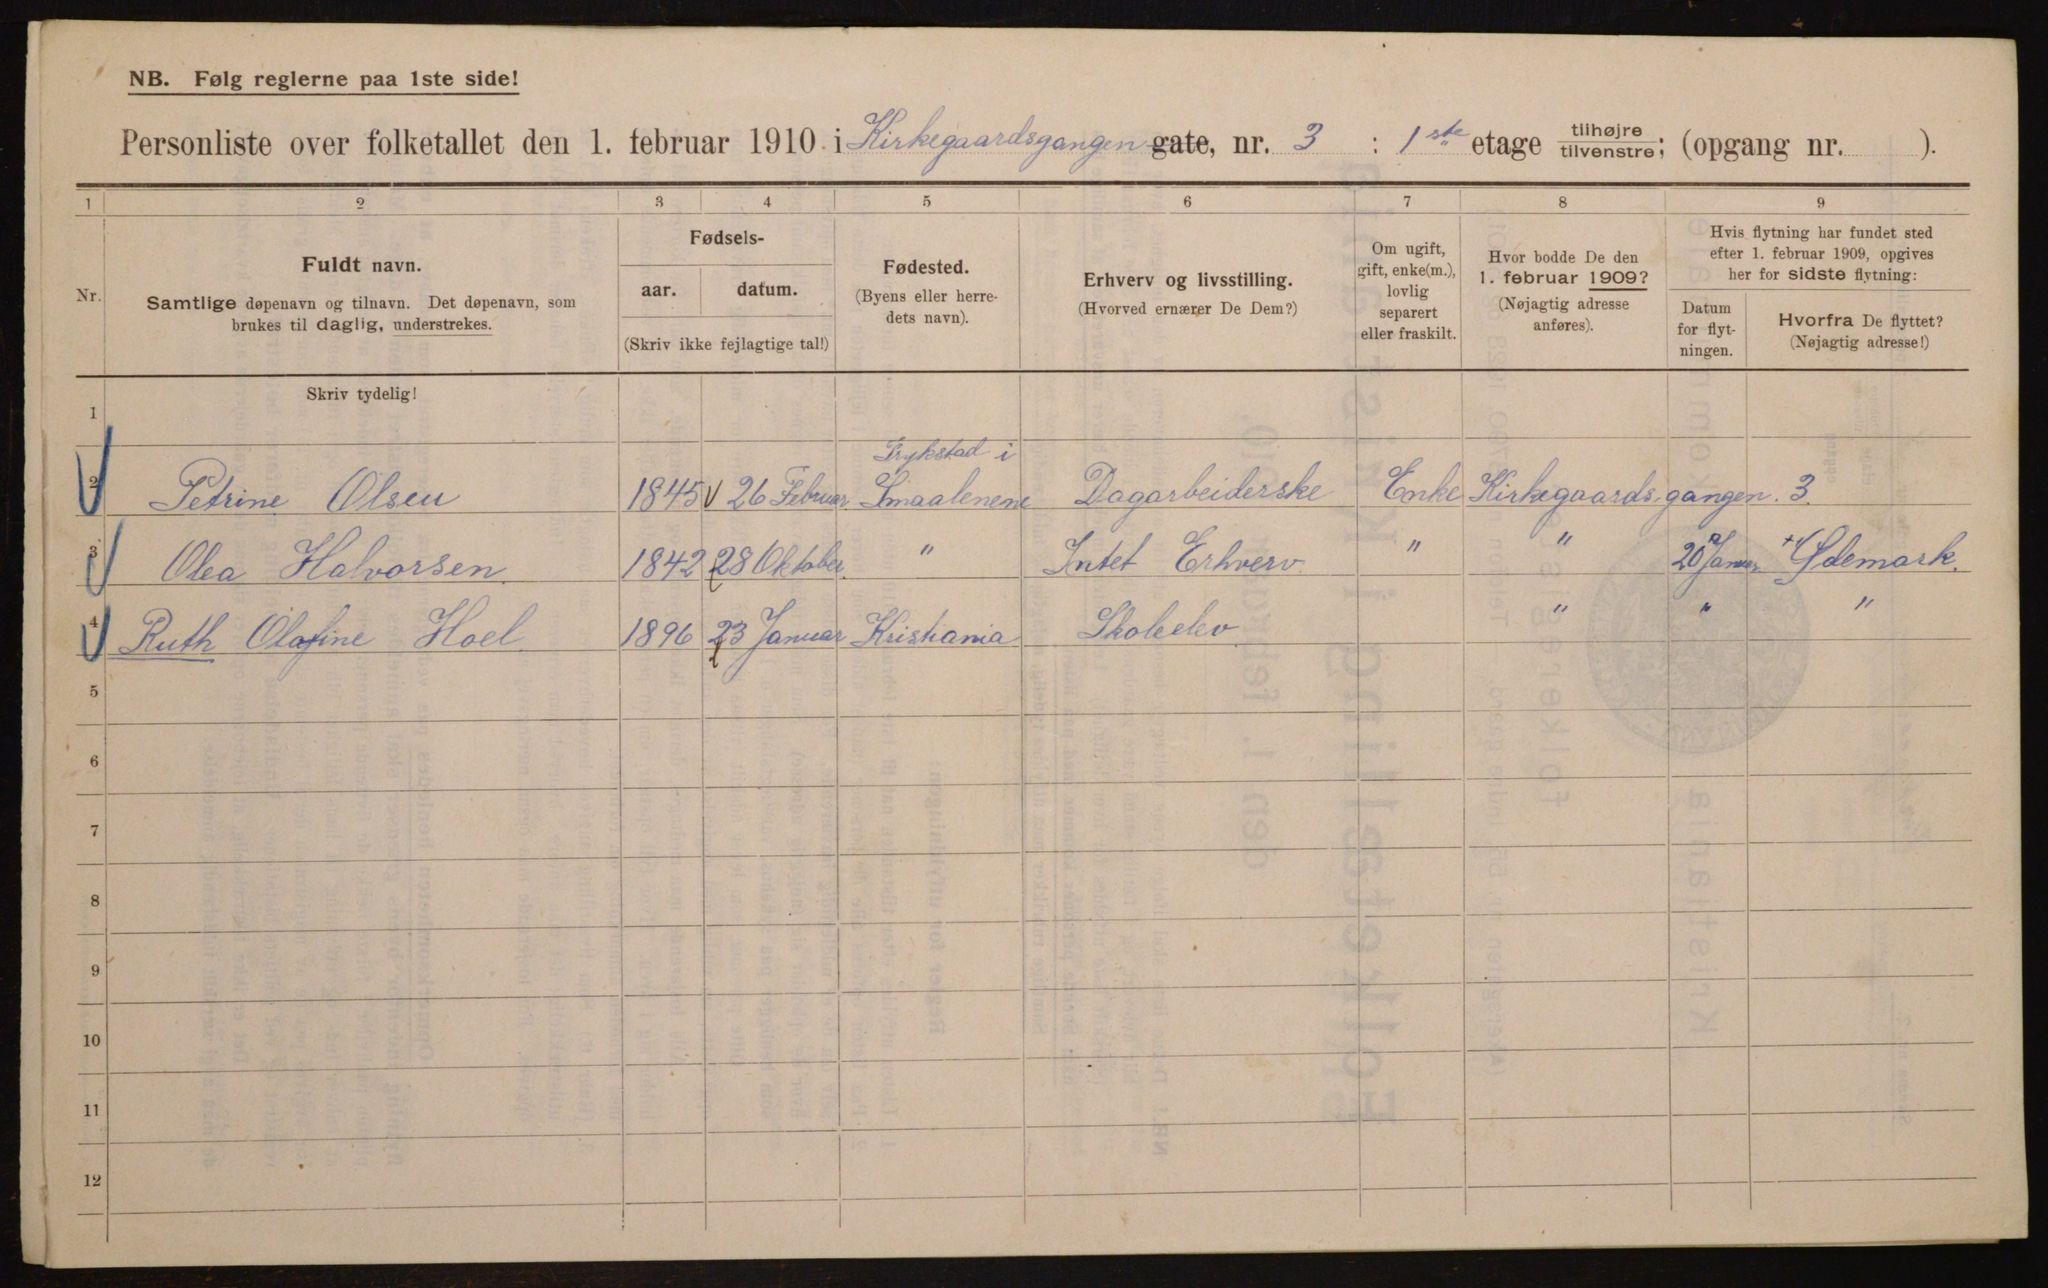 NB. Følg reglerne paa 1ste side!
Personliste over folketallet den 1. februar 1910 i Kirkegaardsgangen gate, nr. 3 : 1ste etage tilhøjre tilvenstre; (opgang nr. ).
1 2 3 4 5 6 7 8 9
Nr.
Fuldt navn.
Samtlige døpenavn og tilnavn. Det døpenavn, som
brukes til daglig, understrekes.
Fødsels-
aar. datum.
(Skriv ikke fejlagtige tal!)
Fødested.
(Byens eller herre-
dets navn).
Erhverv og livsstilling.
(Hvorved ernærer De Dem?)
Om ugift,
gift, enke(m.),
lovlig
separert
eller fraskilt.
Hvor bodde De den
1. februar 1909?
(Nøjagtig adresse
anføres).
Hvis flytning har fundet sted
efter 1. februar 1909, opgives
her for sidste flytning:
Datum
for flyt-
ningen.
Hvorfra De flyttet?
(Nøjagtig adresse!)
Skriv tydelig!
1
Trykstad i
2 Petrine Olsen 1845 26 Februar Smaalenene Dagarbeiderske Enke Kirkegaardsgangen. 3.
3 Olea Halvorsen 1842 28 Oktober " Intet Erhverv " " 20 Januar Ødemark.
4 Ruth Olafine Hoel 1896 23 Januar Kristiania Skoleelev " " "
5
6
7
8
9
10
11
12